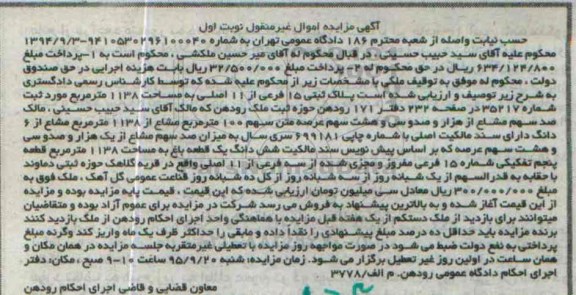 آگهی مزایده اموال غیرمنقول نوبت اول
حسب نیابت واصله از شعبه محترم ۱۸۶ دادگاه عمومی تهران به شماره ۹۴۱۰۵۳۰۲۹۶۱۰۰۰۴۰-۱۳۹۴/۹/۳
محکوم علیه آقای سید حبیب حسینی، در قبال محکوم له آقای میر حسین ملکشی، محکوم است به ۱-پرداخت مبلغ
۶۳۴/۱۲۴/۸۰۰ ریال در حق محکوم له ۲- پرداخت مبلغ ۳۲/۵۰۰/۰۰۰ ریال بابت هزینه اجرایی در حق صندوق
دولت، محکوم له موفق به توقیف ملکی با مشخصات زیر از محکوم علیه شد که توسط کارشناس رسمی دادگستری
به شرح زیر توصیف و ارزیابی شد است پلاک ثبتی ۱۵ فرعی از ۱۱ اصلی به مساحت ۱۱۳۸ مترمربع مورد ثبت
شماره ۳۵۲۱۷ در صفحه ۲۳۲ دفتر ۱۷۱ رودهن حوزه ثبت ملک رودهن که مالک آقای سید حبیب حسینی، مالک
صد سهم مشاع از هزار و صدو سی و هشت سهم عرصه متن سهم ۱۰۰ مترمربع مشاع از ۱۱۳۸ مترمربع مشاع از ۶
دانگ دارای سند مالکیت اصلی با شماره چاپی ۶۹۹۱۸۱ سری سال به میزان صد سهم مشاع از یک هزار و صدو سی
و هشت سهم عرصه که بر اساس پیش نویس سند مالکیت شش دانگ یک قطعه باغ به مساحت ۱۱۳۸ مترمربع قطعه
پنجم تفکیکی شماره ۱۵ فرعی مفروز و مجزی شده از فرعی از ۱۱ اصلی واقع در قریه گلهک حوزه ثبتی دماوند
با حقابه به قدر السهم از یک شبانه روز از یک شبانه روز از کل ده شبانه روز قناعت عمومی گل آهک، ملک فوق به
مبلغ ۳۰۰/۰۰۰/۰۰۰ ریال معادل سی میلیون تومان ارزیابی شده که این قیمت، قیمت پایه مزایده بوده و مزایده
از این قیمت آغاز شده و به بالاترین پیشنهاد به فروش می رسد شرکت در مزایده برای عموم آزاد بوده و متقاضیان
میتوانند برای بازدید از ملک دستکم از یک هفته قبل مزایده با هماهنگی واحد اجرای احکام رودهن از ملک بازدید کنند
برنده مزایده باید حداقل ده درصد مبلغ پیشنهادی را نقداً داده و مابقی را حداکثر ظرف یک ماه واریز کند وگرنه مبلغ
پرداختی به نفع دولت ضبط می شود در صورت مواجهه روز مزایده با تعطیلی غیرمترقبه جلسه مزایده در همان مکان و
همان ساعت در اولین روز غیر تعطیل برگزار می شود. زمان مزایده: شنبه ۹۵/۹/۲۰ ساعت ۱۰-۹ صبح، مکان: دفتر
اجرای احکام دادگاه عمومی رودهن. م الف/۳۷۷۸
معاون قضایی و قاضی اجرای احکام رودهن